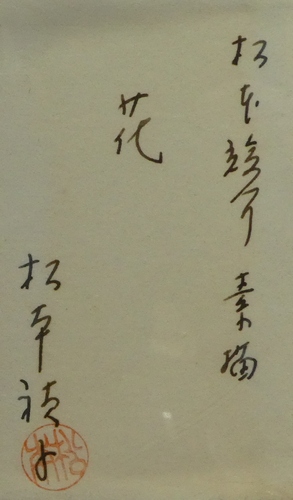 松本竣介 素描
花
松本禎子